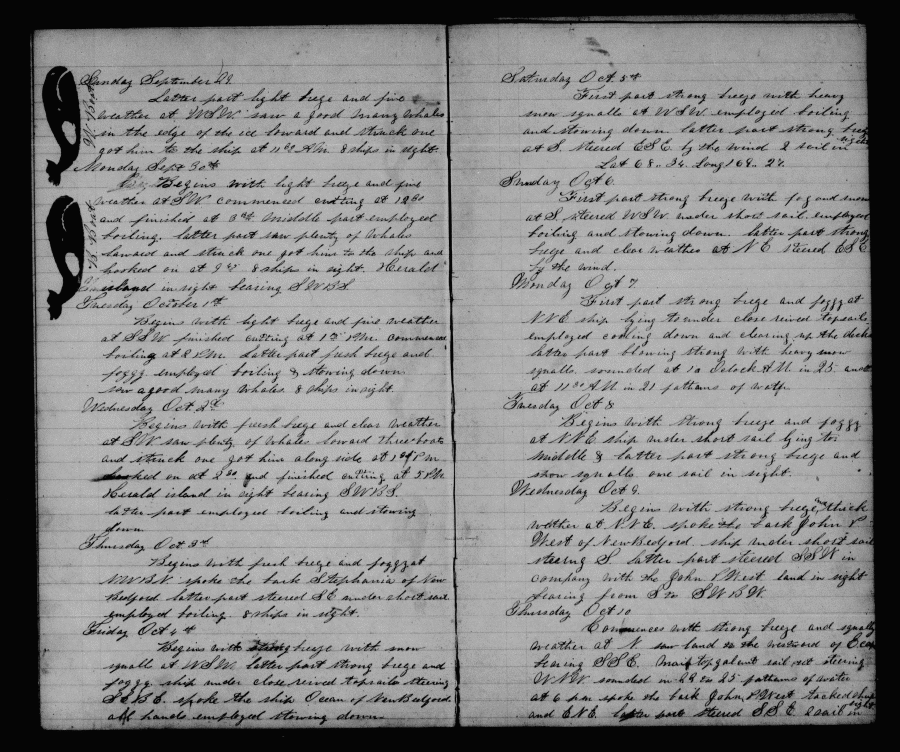 Sunday September 29.
Latter part light breze and fine
weather at WSW saw a good many whales
in the edge of the ice loward and struck one
got him to the ship at 11 00 AM. 8 ships in sight.
W Boat
Monday Sept 30th
Begins with light breeze and fine
weather at SW commenced cutting at 12 30
and finished at 3 middle part employed
boiling. latter part saw plenty of whales
laward and struck one got him to the ship and
hooked on at 9 8 ships in sight. Herald
island in sight bearing SWBS
B Boat
Tuesday October 1st
Begins with light breze and fine weather
at SSW finished cutting at 1 PM. commenced
boiling at 2 PM. Latter part fresh breze and
foggy employed boiling & stowing down
saw a good many whales 8 ships in sight.
Wednesday Oct. 2d
Begins with fresh breze and clear weather
at SW saw plenty of whales loward three boats
and struck one got him along side at 1 PM
hooked on at 2 30 and finished cutting at 5 PM.
Herald island in sight bearing SWBS.
latter part employed boiling and stowing
down
Thursday Oct 3d
Begins with fresh breze and foggy at
NWBN spoke the bark Stephania of New
Bedford latter part steered SE under short sail
employed boiling. 8 ships in sight.
Friday Oct 4th
Begins with breeze with snow
squalls at WSW. latter part strong breze and
foggy ship under close reived topsails steering
SEBE. spoke the ship Ocean of New Bedford
all hands employed stowing down
Saturday Oct 5th
First part strong breeze with heavy
snow squalls at WSW employed boiling
and stowing down latter part strong breze
at S. steered ESE by the wind 2 sail in sight
Lat 68.. 34. Long 168.. 27.
Sunday Oct 6.
First part strong breeze with fog and snow
at S, steered WSW under short sail employed
boiling and stowing down. latter part strong
breze and clear weather at NE steered ESE
by the wind.
Monday Oct 7.
First part strong breze and foggy at
NNE ship lying to under close reived topsails
employed cooling down and clearing up the decks
latter part blowing strong with heavy snow
squalls. sounded at 10 Oclock AM in 25. and
at 11 30 AM in 21 fathoms of water
Tuesday Oct 8
Begins with strong breeze and foggy
at NNE ship under short sail lying to.
middle & latter part strong breze and
snow squalls one sail in sight
Wednesday Oct 9.
Begins with strong breeze, thick
wether at NNE. spoke the bark John P
West of New Bedford. ship under short sail
steering S. latter part steered SSW in
company with the John P West land in sight
bearing from S to SWBW.
Thursday Oct 10
Commences with strong breze and squally
weather at N. saw land to the westward of East
bearing SSE. main topgalent sail set steering
WNW sounded in 22 to 25 fathoms of water
at 6 pm spoke the bark John P West tacked ship
and ENE latter part steered SSE 2 sail in sight